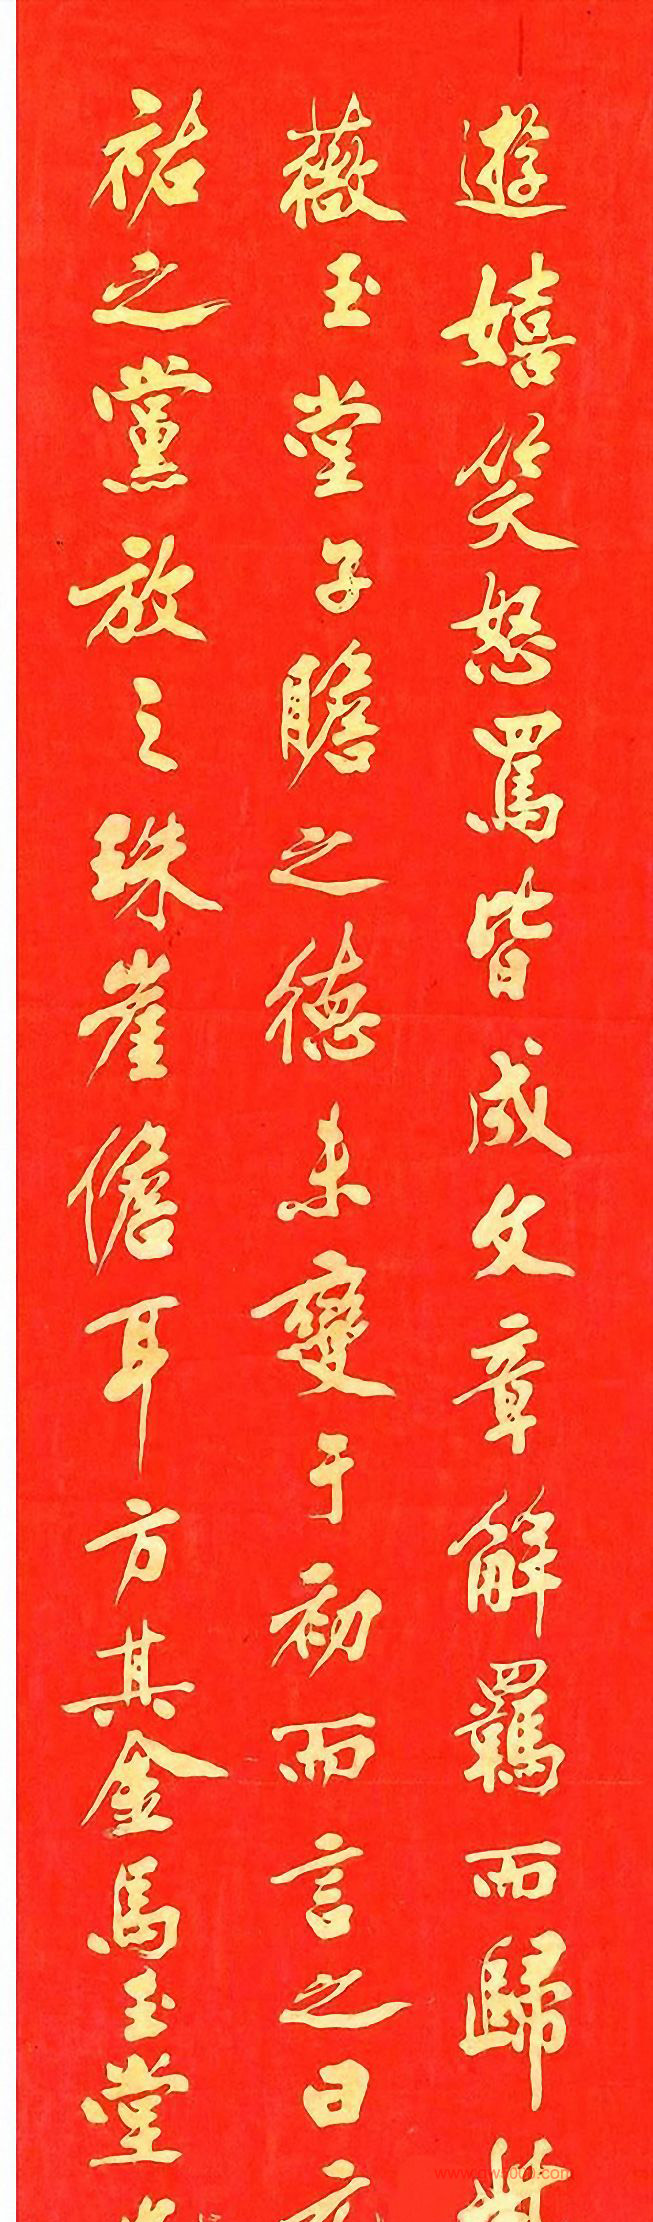 遊嬉笑怒罵皆成文章解羈而歸
薇玉堂子瞻之德未變于初而言之曰
祐之黨放之珠崖儋耳方其金馬玉堂